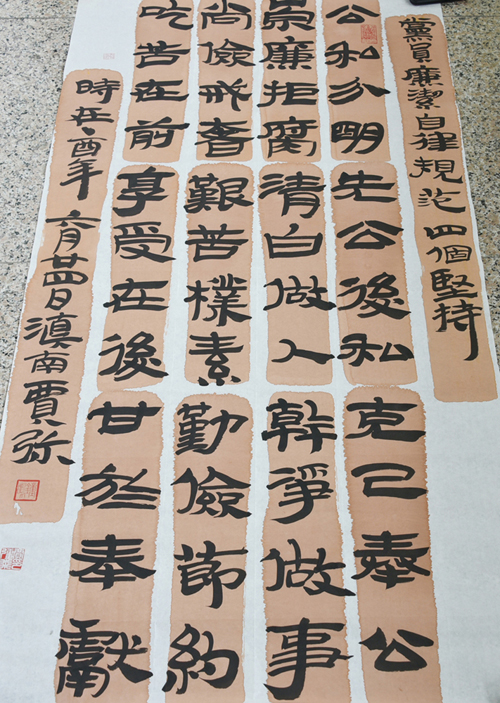 黨員廉潔自律規范 四個堅持
公私分明 先公後私 克己奉公
崇廉拒腐 清白做人 幹淨做事
尚儉戒奢 艱苦樸素 勤儉節約
吃苦在前 享受在後 甘於奉獻
時在酉年 六月廿四日滇南賈弥